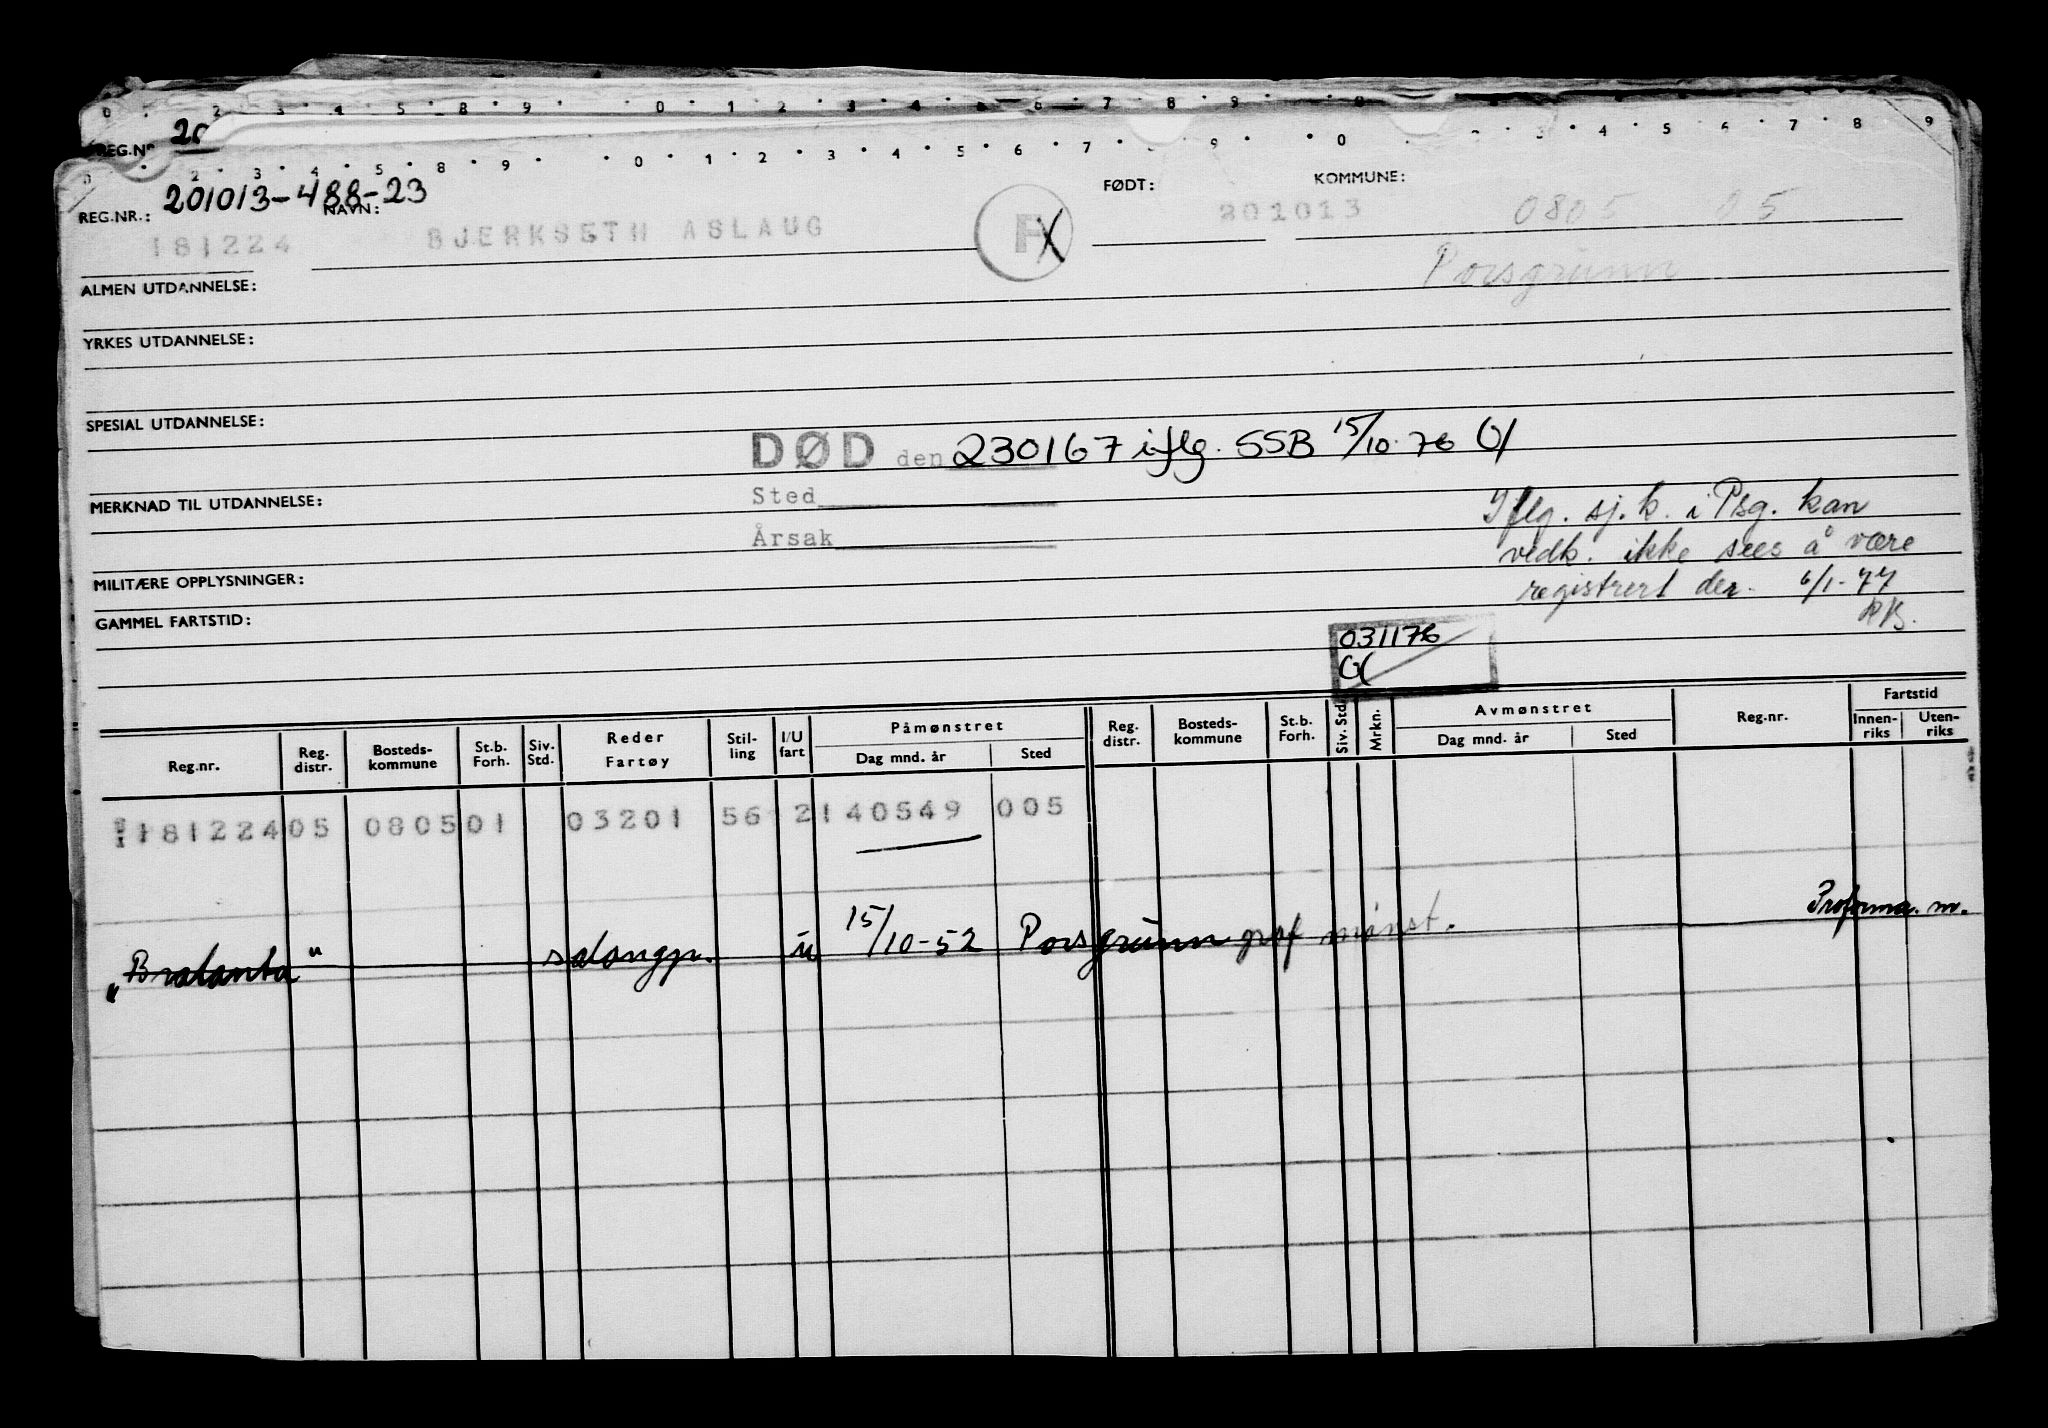 REG.NR. 20
REG.NR.: 201013-488-23 NAVN: FØDT: KOMMUNE:
181224 BJERKSETH ASLAUG F X 201013 0805 05
Porsgrunn
ALMEN UTDANNELSE:
YRKES UTDANNELSE:
SPESIAL UTDANNELSE:
DØD den 230167 iflg. SSB 15/10-76
MERKNAD TIL UTDANNELSE:
Sted
Årsak
Iflg. sj.k. i Psg. kan
vedk. ikke sees å være
registrert der. 6/1-77
RB.
MILITÆRE OPPLYSNINGER:
GAMMEL FARTSTID:
031176
Reg.nr. Reg. distr. Bosteds-kommune St.b. Forh. Siv. Std. Reder Fartøy Stil-ling I/U fart Påmønstret Dag mnd. år Sted Reg. distr. Bosteds-kommune St.b. Forh. Siv. Std. Mrkn. Avmønstret Dag mnd. år Sted Reg.nr. Fartstid Innen-riks Uten-riks
181224 05 0805 01 03201 56 2 140549 005
"Bralanta" salongp. u 15/10-52 Porsgrunn prof mønst. Proforma. m.